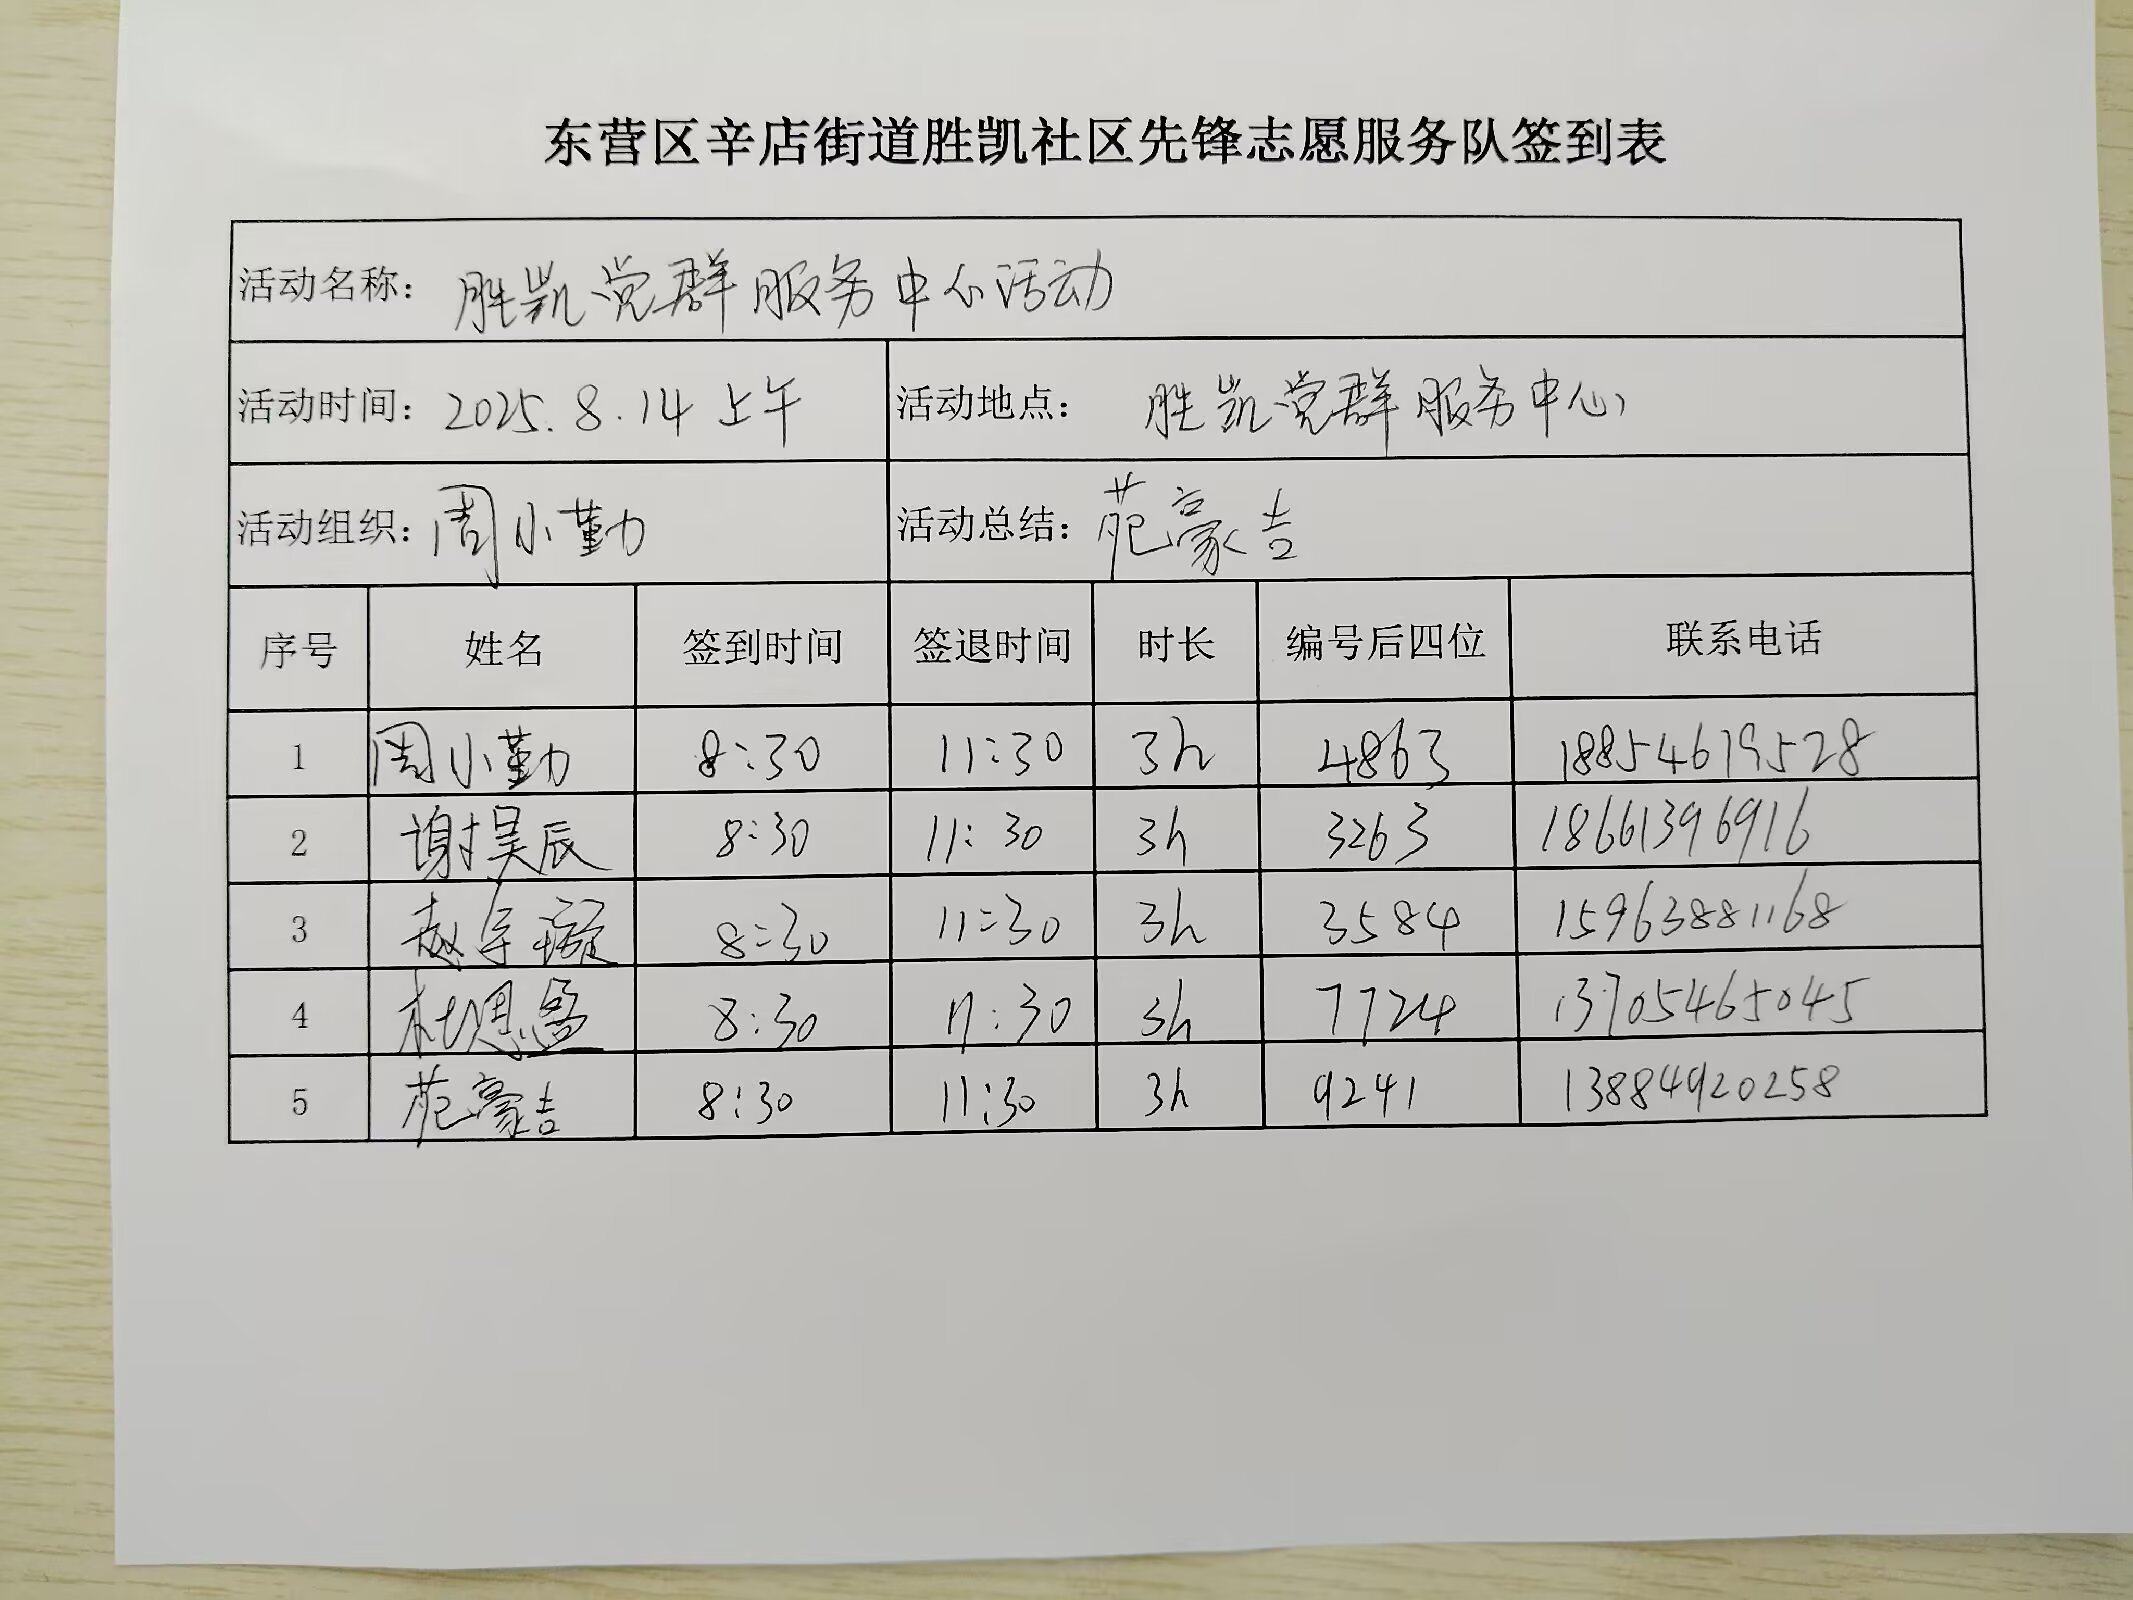 东营区辛店街道胜凯社区先锋志愿服务队签到表
活动名称：胜凯党群服务中心活动
活动时间：2025.8.14 上午 活动地点：胜凯党群服务中心
活动组织：周小勤 活动总结：苑豪吉
序号 姓名 签到时间 签退时间 时长 编号后四位 联系电话
1 周小勤 8:30 11:30 3h 4863 18854619528
2 谢昊辰 8:30 11:30 3h 3263 18661396916
3 赵宇璇 8:30 11:30 3h 3584 15963881168
4 杜恩盈 8:30 11:30 3h 7724 13705465045
5 苑豪吉 8:30 11:30 3h 9241 13884920258